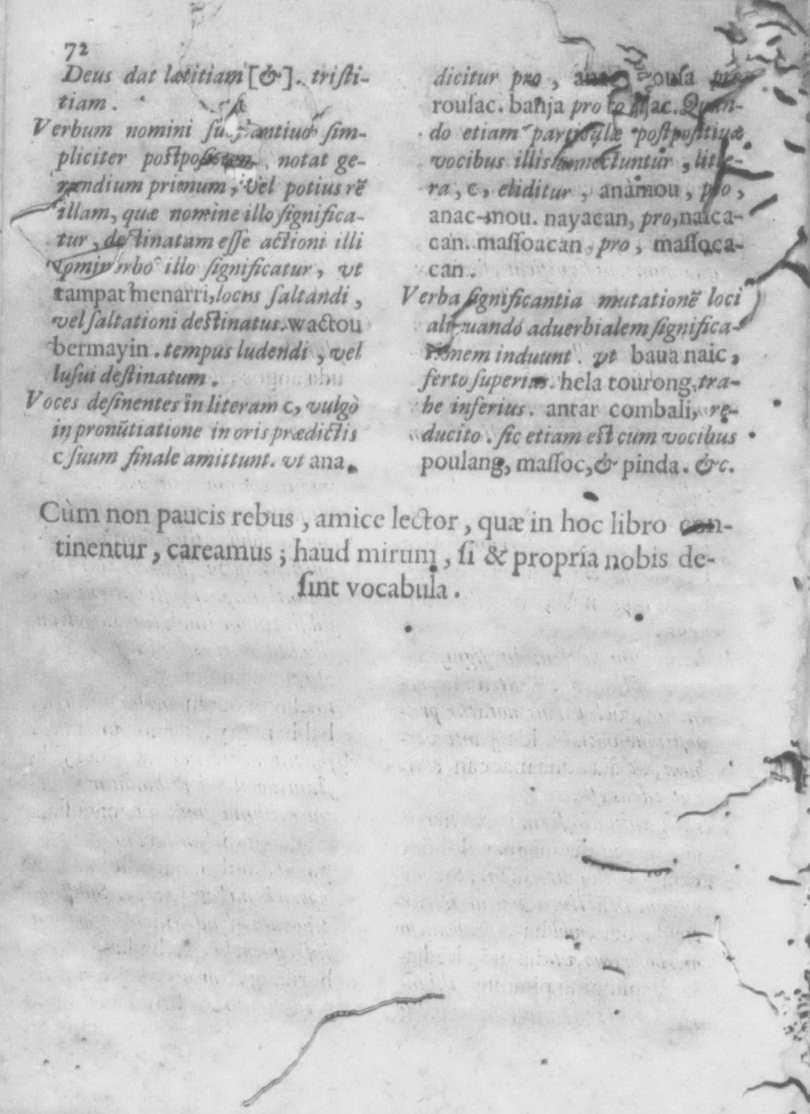 72
Deus dat lætitiam [&]. tristi-
tiam.
Verbum nomini sim-
pliciter notat ge-
rundium primum, vel potius rē
illam, quæ nomine illo significa-
tur, destinatam esse actioni illi
illo significatur, vt
tampat menarri, locus saltandi,
vel saltationi destinatus. wactou
bermayin. tempus ludendi, vel
lusui destinatum.
Voces desinentes in literam c, vulgò
in pronūtiatione in oris prædictis
c suum finale amittunt. vt ana,
dicitur pro,
rousac. banja pro
do etiam particulæ postpositiuæ
vocibus illis annectuntur, lite-
ra, c, eliditur, anamou, pro,
anac-mou. nayacan, pro, naica-
can. massoacan, pro, massoca-
can.
Verba significantia mutationē loci
aliquando aduerbialem significa-
tionem induunt. vt baua naic,
ferto superius. hela tourong, tra-
he inferius. antar combali, re-
ducito. sic etiam est cum vocibus
poulang, massoc, & pinda. &c.
Cùm non paucis rebus, amice lector, quæ in hoc libro con-
tinentur, careamus; haud mirum, si & propria nobis de-
sint vocabula.